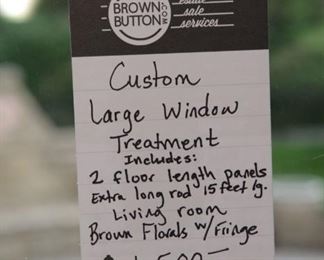 BROWN
BUTTON
.COM
estate
sale
services
Custom
Large Window
Treatment
Includes:
2 floor length panels
Extra long rod 15 feet lg.
Living room
Brown Florals w/Fringe